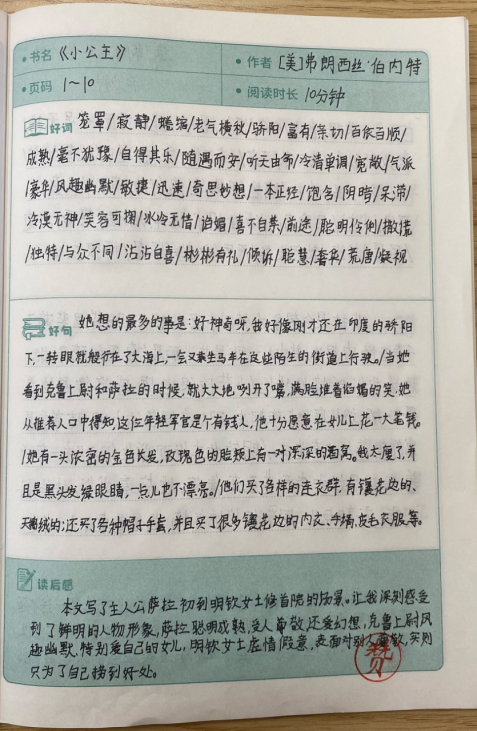 书名 《小公主》
作者 [美]弗朗西丝·伯内特
页码 1~10
阅读时长 10分钟
好词 笼罩/寂静/蜷缩/老气横秋/骄阳/富有/亲切/百依百顺/
成熟/毫不犹豫/自得其乐/随遇而安/听天由命/冷清单调/宽敞/气派
/豪华/风趣幽默/敏捷/迅速/奇思妙想/一本正经/饱含/阴暗/呆滞/
冷漠无神/笑容可掬/冰冷无情/谄媚/喜不自禁/前途/聪明伶俐/撒谎
/独特/与众不同/沾沾自喜/彬彬有礼/倾诉/聪慧/奢华/荒唐/凝视
好句 她想的最多的事是:好神奇呀,我好像刚才还在印度的骄阳
下,一转眼就航行在了大海上,一会又乘坐马车在这些陌生的街道上行驶。/当她
看到克鲁上尉和萨拉的时候,就大大地咧开了嘴,满脸堆着谄媚的笑.她
从推荐人口中得知这位年轻军官是个有钱人,他十分愿意在女儿上花一大笔钱。
/她有一头浓密的金色长发,玫瑰色的脸颊上有一对深深的酒窝。我太瘦了,并
且是黑头发,绿眼睛,一点儿也不漂亮。/他们买了各样的连衣群,有镶花边的、
天鹅绒的;还买了各种帽子手套,并且买了很多镶花边的内衣、手绢、皮毛衣服等。
读后感
本文写了主人公萨拉初到明钦女士修首院的场景。让我深刻感受
到了鲜明的人物形象,萨拉聪明成熟,受人尊敬,还爱幻想,克鲁上尉风
趣幽默,特别爱自己的女儿,明钦女士虚情假意,表面对别人尊敬,实则
只为了自己捞到好处。
赞